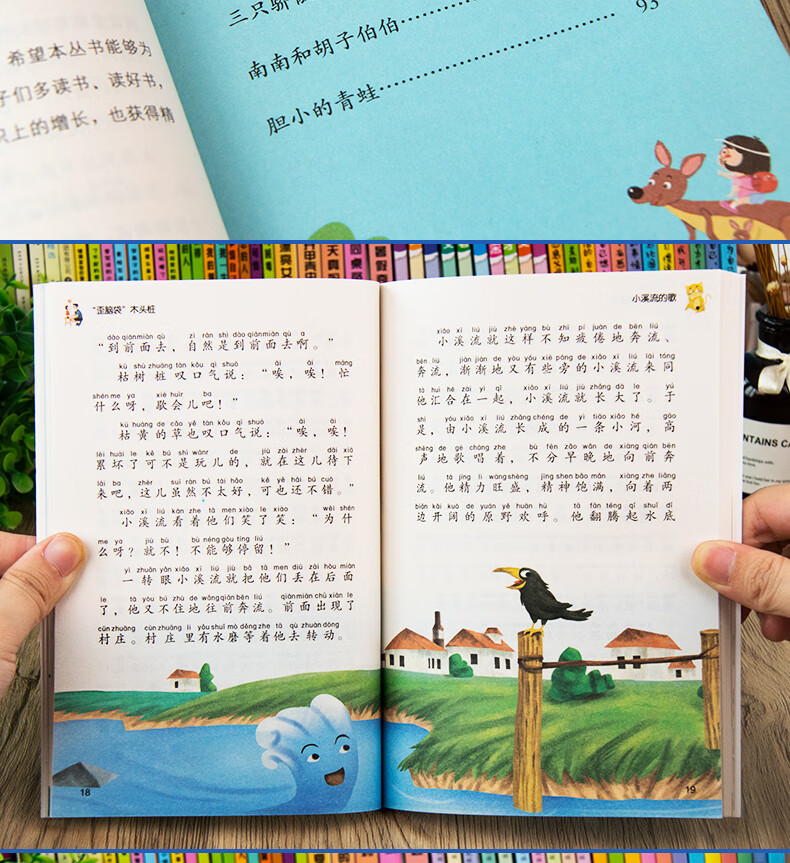 三只骄
93
南南和胡子伯伯
胆小的青蛙
希望本丛书能够为
子们多读书、读好书,
识上的增长,也获得精
“歪脑袋”木头桩
dào qiánmiàn qù zì rán shì dào qiánmiàn qù a
“到前面去,自然是到前面去啊。”
kū shù zhuāng tàn kǒu qì shuō ài ài máng
枯树桩叹口气说:“唉,唉!忙
shén me ya xiē huìr ba
什么呀,歇会儿吧!”
kū huáng de cǎo yě tàn kǒu qì shuō ài ài
枯黄的草也叹口气说:“唉,唉!
lèi huài le kě bú shì wánr de jiù zài zhèr dāi xià
累坏了可不是玩儿的,就在这儿待下
lái ba zhèr suī rán bú tài hǎo kě yě hái bú cuò
来吧,这儿虽然不太好,可也还不错。”
xiǎo xī liú kàn zhe tā men xiào le xiào wèi shén
小溪流看着他们笑了笑:“为什
me ya jiù bù bù néng gòu tíng liú
么呀?就不!不能够停留!”
yì zhuǎn yǎn xiǎo xī liú jiù bǎ tā men diū zài hòu miàn
一转眼小溪流就把他们丢在后面
le tā yòu bú zhù de wǎng qián bēn liú qián miàn chū xiàn le
了,他又不住地往前奔流。前面出现了
cūn zhuāng cūn zhuāng li yǒu shuǐ mò děng zhe tā qù zhuàn dòng
村庄。村庄里有水磨等着他去转动。
18
小溪流的歌
xiǎo xī liú jiù zhè yàng bù zhī pí juàn de bēn liú
小溪流就这样不知疲倦地奔流、
bēn liú jiàn jiàn de yòu yǒu xiē páng de xiǎo xī liú lái tóng
奔流,渐渐地又有些旁的小溪流来同
tā huì hé zài yì qǐ xiǎo xī liú jiù zhǎng dà le yú
他汇合在一起,小溪流就长大了。于
shì yóu xiǎo xī liú zhǎng chéng de yì tiáo xiǎo hé gāo
是,由小溪流长成的一条小河,高
shēng de gē chàng zhe bù fēn zǎo wǎn de xiàng qián bēn
声地歌唱着,不分早晚地向前奔
liú tā jīng lì wàng shèng jīng shen bǎo mǎn xiàng zhe liǎng
流。他精力旺盛,精神饱满,向着两
biān kāi kuò de yuán yě huān hū tā fān téng qǐ shuǐ dǐ
边开阔的原野欢呼。他翻腾起水底
19